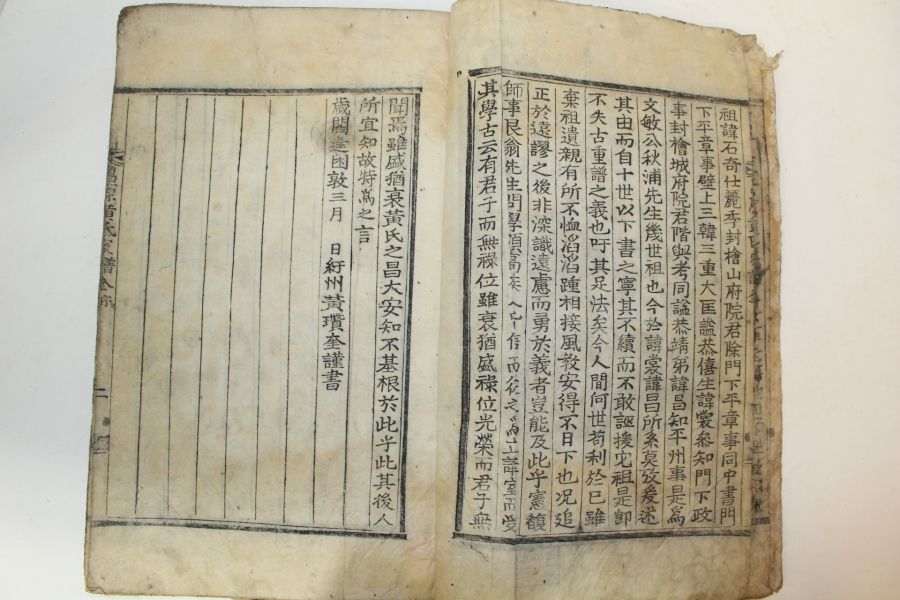 祖諱石奇仕麗季封檜山府院君除門下平章事同中書門
下平章事壁上三韓三重大匡謚恭僖生諱裳叅知門下政
事封檜城府院君階與考同謚恭靖弟諱昌知平州事是爲
文敏公秋浦先生幾世祖也今於諱裳諱昌所系莫攷爰述
其由而自十世以下書之寧其不續而不敢誣援它祖是卽
不失古重譜之義也吁其足法矣今人間何世苟利於已雖
棄祖遺親有所不恤滔滔踵相接風教安得不日下也况追
正於遠謬之後非深識遠慮而勇於義者豈能及此乎憲馥
師事艮翁先生問學頗高 室而受
其學古云有君子而無祿位雖衰猶盛祿位光榮而君子無
聞焉雖盛猶衰黃氏之昌大安知不基根於此乎此其後人
所宜知故特爲之言
歲閼逢困敦三月 日紆州黃瓚奎謹書
黃氏家譜全
二